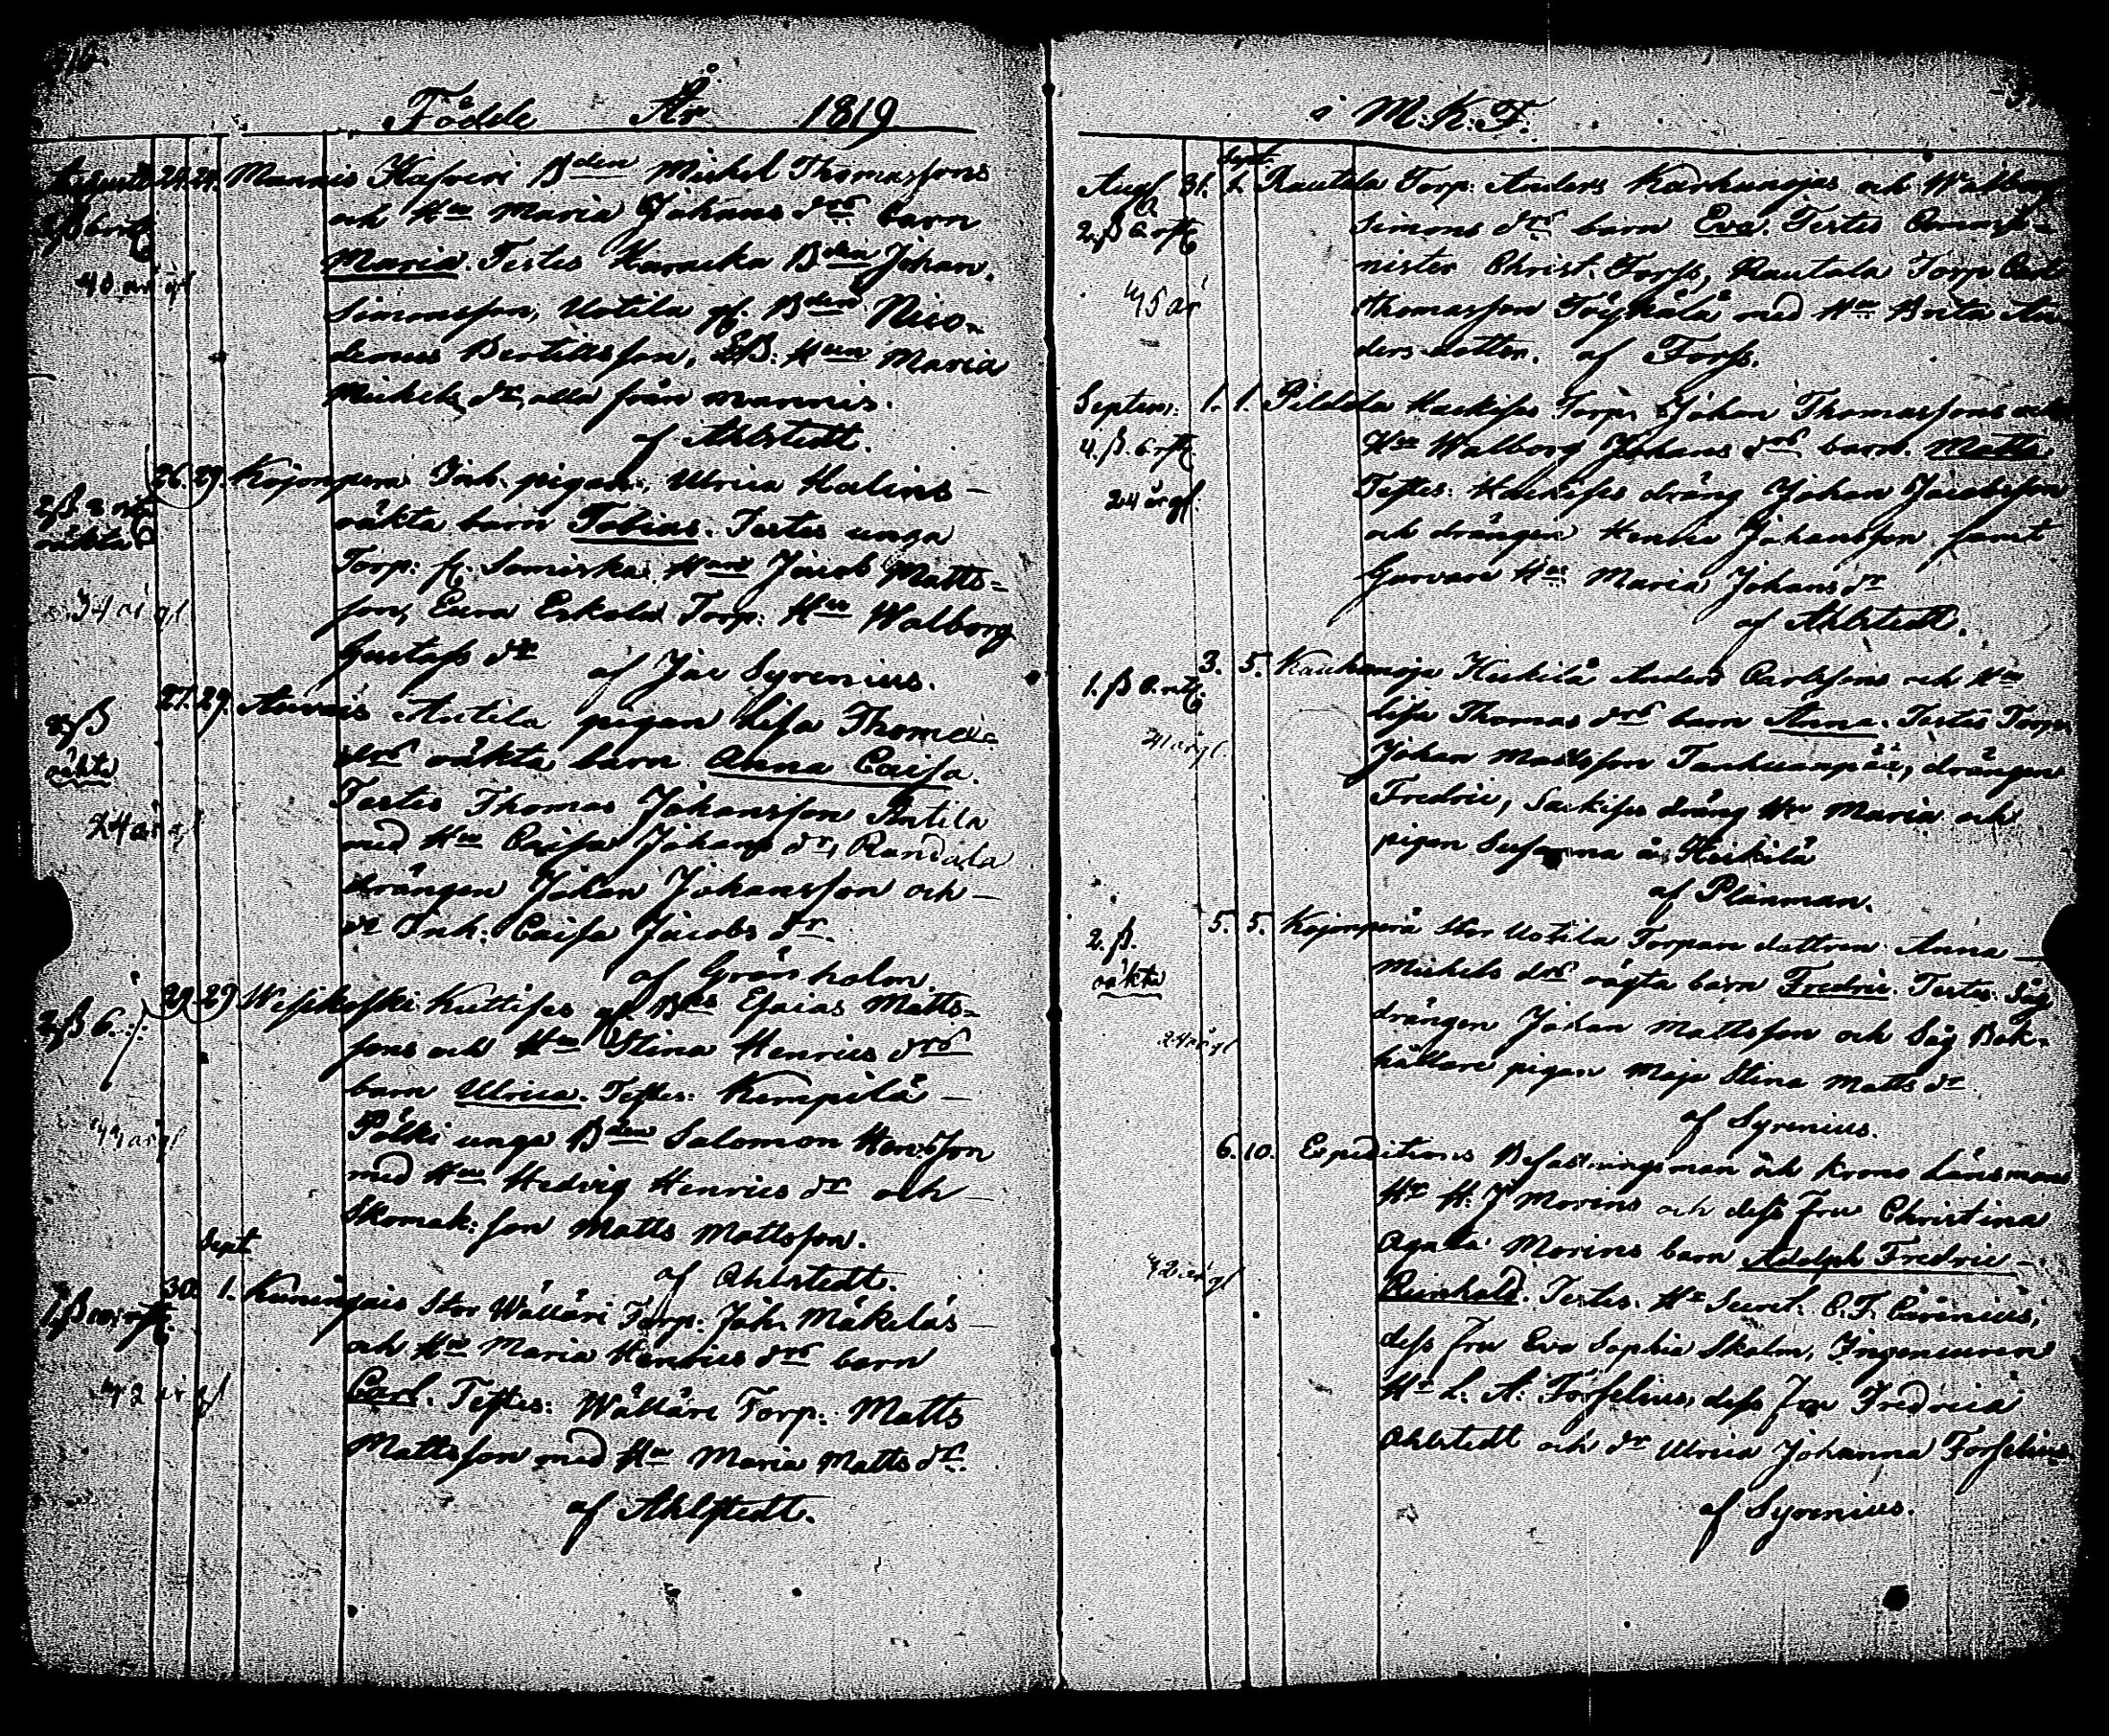 Födde År 1819
Augusti 24. 24. Mannis Kasveri Bden Michel Thomassons
och Hus Maria Johans drs barn
40 år gl Maria. Testes Karucka Bden Johan
Simonsson, Uotila gf. Bden Nico-
demus Bertilsson, EB: Hun Maria
Michels dr, alla från Mannis.
af Ahlstedt.
26. 29. Kojonperä Inh. pigan Ulrica Malins
oäkta barn Tobias. Testes unga
oäkta
Torp: fr. Samiska Hans Jacob Matts-
34 år gl
son, Eura Eskola Torp: Hus Walborg
Gustafs dr
af Jac Syrenius.
27. 29. Auvais Antila pigan Lisa Thomæ
drs oäkta barn Anna Caisa.
oäkta
Testes Thomas Johansson Antila
24 år gl
med Hus Caisa Johans dr, Randala
drängen Johan Johansson och
dr Inh: Caisa Jacobs dr.
af Grönholm.
2 ß 6. 29. 29. Wesikoski Kuttises gf. Bds Esaias Matts-
sons och Hus Stina Henrics drs
barn Ulrica. Testes: Kempilä
44 år gl
Pölki unga Bden Salomon Henrsson
med Hus Hedvig Henrics dr och
Skomak: son Matts Mattsson.
af Ahlstedt.
Sept.
30. 1. Kuningais Stor Wälläri Torp: Joh. Mäkeläs
och Hus Maria Henrics drs barn
42 år gl
Carl. Testes: Wälläri Torp: Matts
Mattsson med Hus Maria Matts dr.
af Ahlstedt.
i M:K:F.
Sept.
Aug. 31. 2. Rautala Torp: Anders Karhunojas och Walborg
Simons drs barn Eva. Testes
45 år
nister Christ. Forss, Rautala Torp Carl
Thomasson Töykälä med Hus Brita An-
ders dotter. af Forss.
Septem: 1. 1. Pilddla Torp. Johan Thomassons och
Hus Walborg Johans drs barn. Matts.
24 år gl.
Testes: dräng Johan Jacobsson
och drängen Henric Johansson samt
Garvare Hus Maria Johans dr
af Ahlstedt.
3. 5. Kauhanoja Heikilä Anders Carlssons och Hus
Lisa Thomas drs barn Anna. Testes Torp.
Johan Mattsson Tanhuanpää, drängen
Fredric, dräng Hus Maria och
pigan Susanna å Heikilä
af Planman.
2. ß. 5. 5. Kojonperä Stor Uotila Torpare dottren Anna
oäkta
Michels drs oägta barn Fredric. Testes: Såg
drängen Johan Mattsson och Såg Bok-
24 år gl
hållare pigan Maja Stina Matts dr.
af Syrenius.
6. 10. Expeditions Befallningsman och Krono Länsman
Hr H: J Morins och dess Fru Christina
Agata Morins barn Adolph Fredric
42 år gl
Reinhold. Testes: Hr Secret: C. F.
dess Fru Eva Sophia Skalm, Ingenieuren
Hr L: A: Forselius, dess Fru Fredrica
Ahlstedt och dr Ulrica Johanna Forselius
af Syrenius.